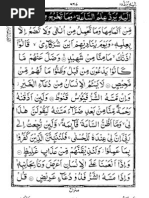 اِلَيْهِ يُرَدُّ عِلْمُ السَّاعَةِ وَمَا تَخْرُجُ مِنْ
مِّنْ اَكْمَامِهَا وَمَا تَحْمِلُ مِنْ اُنْثٰى وَلَا تَضَعُ اِلَّا
بِعِلْمِهٖ وَيَوْمَ يُنَادِيْهِمْ اَيْنَ شُرَكَآءِىْ قَالُوْٓا
اٰذَنّٰكَ مَا مِنَّا مِنْ شَهِيْدٍ وَضَلَّ عَنْهُمْ مَّا
كَانُوْا يَدْعُوْنَ مِنْ قَبْلُ وَظَنُّوْا مَا لَهُمْ مِّنْ
مَّحِيْصٍ لَا يَسْـَٔمُ الْاِنْسَانُ مِنْ دُعَآءِ الْخَيْرِ
وَاِنْ مَّسَّهُ الشَّرُّ فَيَـُٔوْسٌ قَنُوْطٌ وَلَئِنْ اَذَقْنٰهُ
رَحْمَةً مِّنَّا مِنْ بَعْدِ ضَرَّآءَ مَسَّتْهُ لَيَقُوْلَنَّ هٰذَا
لِىْ وَمَآ اَظُنُّ السَّاعَةَ قَآئِمَةً وَلَئِنْ رُّجِعْتُ اِلٰى
رَبِّىْٓ اِنَّ لِىْ عِنْدَهٗ لَلْحُسْنٰى فَلَنُنَبِّئَنَّ الَّذِيْنَ
كَفَرُوْا بِمَا عَمِلُوْا وَلَنُذِيْقَنَّهُمْ مِّنْ عَذَابٍ غَلِيْظٍ
وَاِذَآ اَنْعَمْنَا عَلَى الْاِنْسَانِ اَعْرَضَ وَنَاٰ بِجَانِبِهٖ
وَاِذَا مَسَّهُ الشَّرُّ فَذُوْ دُعَآءٍ عَرِيْضٍ قُلْ اَرَءَيْتُمْ